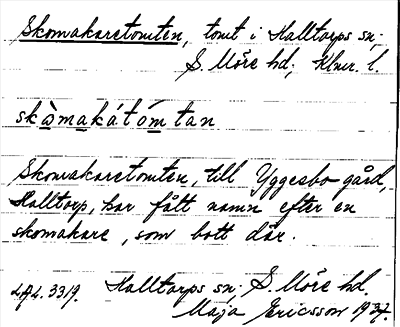 Skomakaretomten, tomt i Halltorps sn;
S. Möre hd; Klmr. l.
skòmakátómtan
Skomakaretomten, till Yggesbo gård,
Halltorp, har fått namn efter en
skomakare, som bott där.
Halltorps sn; S. Möre hd.
3319.
Maja Ericsson 1937.